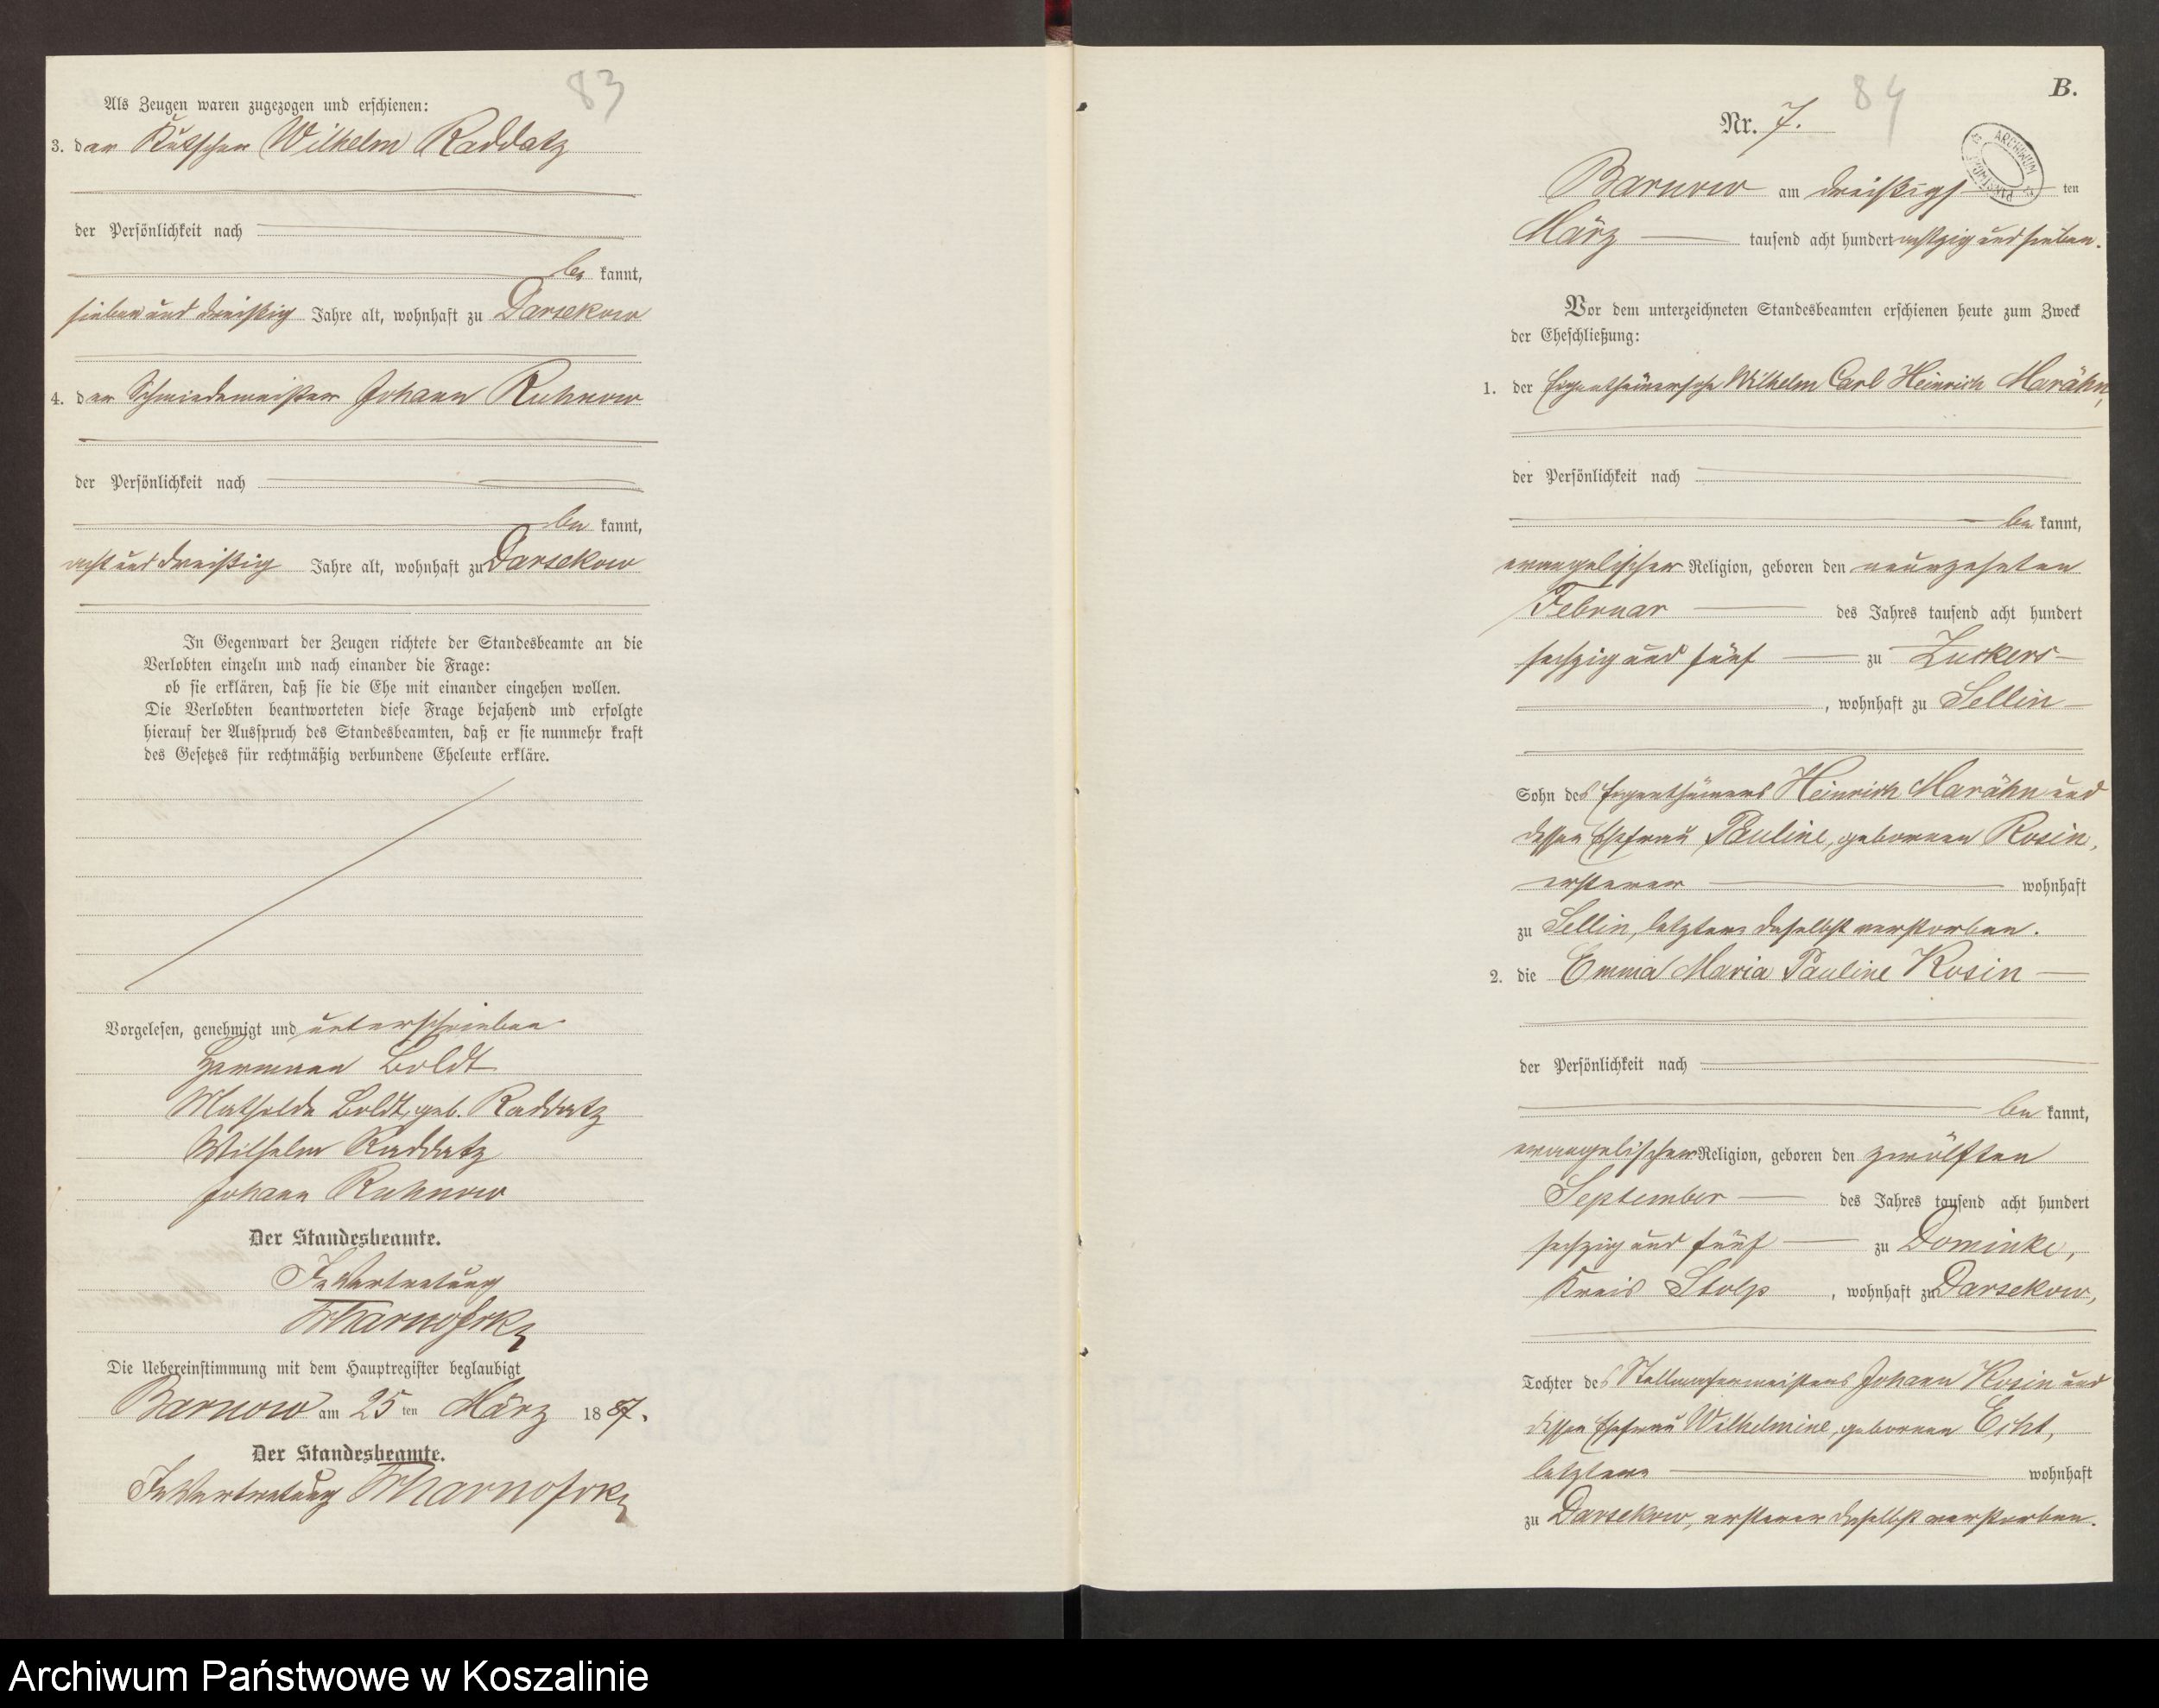 83
Als Zeugen waren zugezogen und erschienen:
3. der Kutscher Wilhelm Raddatz
der Persönlichkeit nach
be kannt,
sieben und dreißig Jahre alt, wohnhaft zu Darsekow
4. der Schmiedemeister Johann Ruhnow
der Persönlichkeit nach
be kannt,
acht und dreißig Jahre alt, wohnhaft zu Darsekow
In Gegenwart der Zeugen richtete der Standesbeamte an die
Verlobten einzeln und nach einander die Frage:
ob sie erklären, daß sie die Ehe mit einander eingehen wollen.
Die Verlobten beantworteten diese Frage bejahend und erfolgte
hierauf der Ausspruch des Standesbeamten, daß er sie nunmehr kraft
des Gesetzes für rechtmäßig verbundene Eheleute erkläre.
Vorgelesen, genehmigt und unterschrieben
Hermann Boldt
Mathilde Boldt, geb. Raddatz
Wilhelm Raddatz
Johann Ruhnow
Der Standesbeamte.
In Vertretung
Die Uebereinstimmung mit dem Hauptregister beglaubigt
Barnow am 25 ten März 1887.
Der Standesbeamte.
In Vertretung
84
B.
Nr. 7.
ARCHIWUM
Barnow am dreißigs ten
März tausend acht hundert achtzig und sieben.
Vor dem unterzeichneten Standesbeamten erschienen heute zum Zweck
der Eheschließung:
1. der Wilhelm Carl Heinrich Marähn,
der Persönlichkeit nach
be kannt,
evangelischer Religion, geboren den neunzehnten
Februar des Jahres tausend acht hundert
sechzig und fünf zu Zuckers
, wohnhaft zu Sellin
Sohn des Eigenthümers Heinrich Marähn und
dessen Ehefrau Pauline, geborenen Rosin,
ersterer wohnhaft
zu Sellin, letztere daselbst verstorben.
2. die Emma Maria Pauline Kosin
der Persönlichkeit nach
be kannt,
evangelischer Religion, geboren den zwölften
September des Jahres tausend acht hundert
sechzig und fünf zu Dominke,
Kreis Stolp, wohnhaft zu Darsekow,
Tochter des Stellmachermeisters Johann Kosin und
dessen Ehefrau Wilhelmine, geborenen Echt,
letztere wohnhaft
zu Darsekow, ersterer daselbst verstorben.
Archiwum Państwowe w Koszalinie